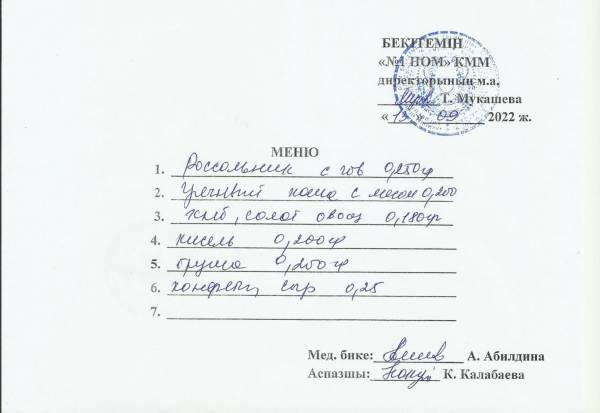 БЕКІТЕМІН
«№1 НОМ» КММ
директорының м.а.
Т. Мукашева
« 13 » 09 2022 ж.
МЕНЮ
1. Россольник с гов 0,250гр
2. каша с мясом 0,200
3. хлеб, салат овощ 0,180гр
4. кисель 0,200гр
5. груша 0,200гр
6. конфеты, сыр 0,25
7.
Мед. бике: А. Абилдина
Аспазшы: К. Калабаева